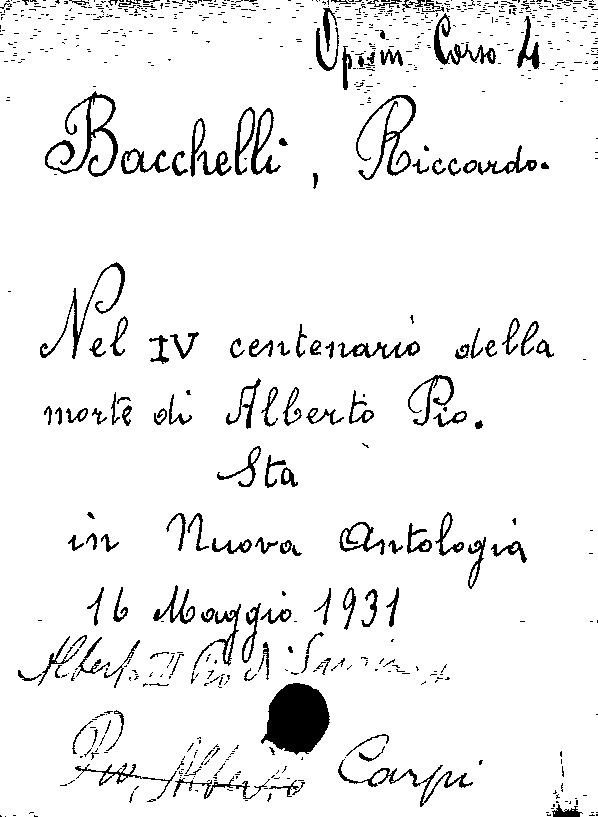 Corso 4
Bacchelli, Riccardo.
Nel IV centenario della
morte di Alberto Pio.
Sta
in Nuova Antologia
16 Maggio 1931
Alberto III Pio di
Pio, Alberto Carpi